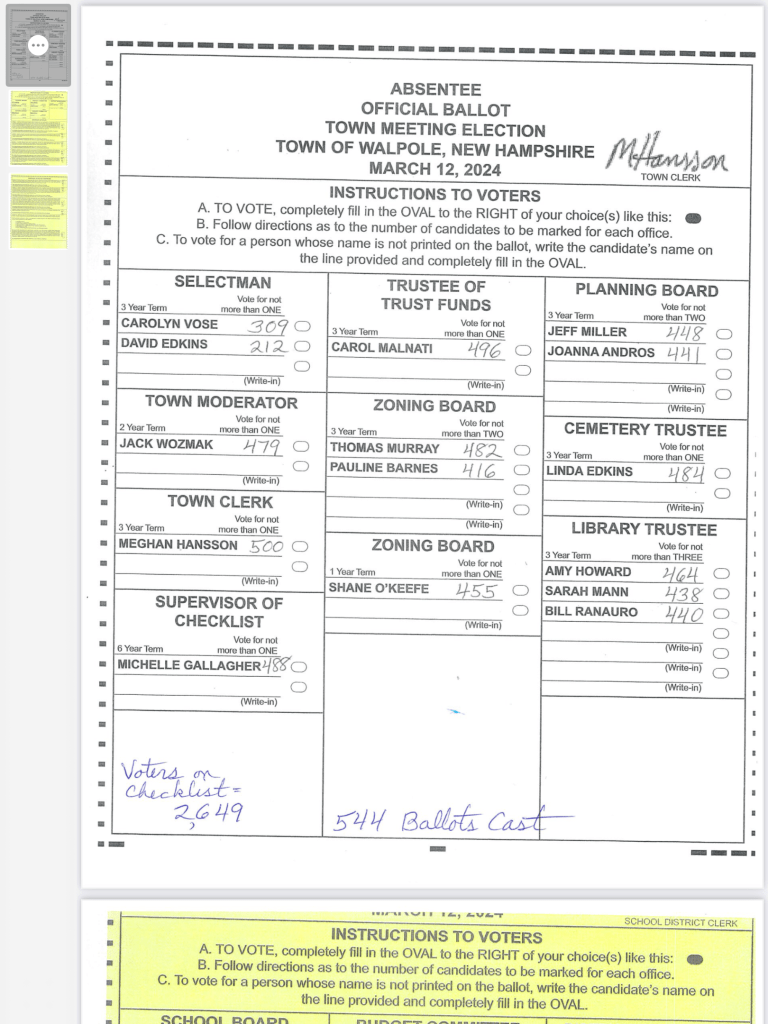 ABSENTEE
OFFICIAL BALLOT
TOWN MEETING ELECTION
TOWN OF WALPOLE, NEW HAMPSHIRE
MARCH 12, 2024
MHansson
TOWN CLERK
INSTRUCTIONS TO VOTERS
A. TO VOTE, completely fill in the OVAL to the RIGHT of your choice(s) like this:
B. Follow directions as to the number of candidates to be marked for each office.
C. To vote for a person whose name is not printed on the ballot, write the candidate's name on
the line provided and completely fill in the OVAL.
SELECTMAN
Vote for not
3 Year Term more than ONE
CAROLYN VOSE 309
DAVID EDKINS 212
(Write-in)
TOWN MODERATOR
Vote for not
2 Year Term more than ONE
JACK WOZMAK 479
(Write-in)
TOWN CLERK
Vote for not
3 Year Term more than ONE
MEGHAN HANSSON 500
(Write-in)
SUPERVISOR OF
CHECKLIST
Vote for not
6 Year Term more than ONE
MICHELLE GALLAGHER 488
(Write-in)
Voters on
checklist =
2,649
TRUSTEE OF
TRUST FUNDS
Vote for not
3 Year Term more than ONE
CAROL MALNATI 496
(Write-in)
ZONING BOARD
Vote for not
3 Year Term more than TWO
THOMAS MURRAY 482
PAULINE BARNES 416
(Write-in)
(Write-in)
ZONING BOARD
Vote for not
1 Year Term more than ONE
SHANE O'KEEFE 455
(Write-in)
544 Ballots Cast
PLANNING BOARD
Vote for not
3 Year Term more than TWO
JEFF MILLER 448
JOANNA ANDROS 441
(Write-in)
(Write-in)
CEMETERY TRUSTEE
Vote for not
3 Year Term more than ONE
LINDA EDKINS 484
(Write-in)
LIBRARY TRUSTEE
Vote for not
3 Year Term more than THREE
AMY HOWARD 464
SARAH MANN 438
BILL RANAURO 440
(Write-in)
(Write-in)
(Write-in)
MARCH 12, 2024
SCHOOL DISTRICT CLERK
INSTRUCTIONS TO VOTERS
A. TO VOTE, completely fill in the OVAL to the RIGHT of your choice(s) like this:
B. Follow directions as to the number of candidates to be marked for each office.
C. To vote for a person whose name is not printed on the ballot, write the candidate's name on
the line provided and completely fill in the OVAL.
SCHOOL BOARD
BUDGET COMMITTEE